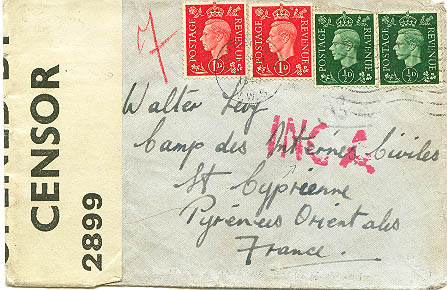 OPENED BY
CENSOR
2899
7
POSTAGE REVENUE
1D
POSTAGE REVENUE
1D
POSTAGE REVENUE
½D
POSTAGE REVENUE
½D
Walter Levy
INCA
Camp des Internés Civiles
St Cyprienne
Pyrénées Orientales
France.